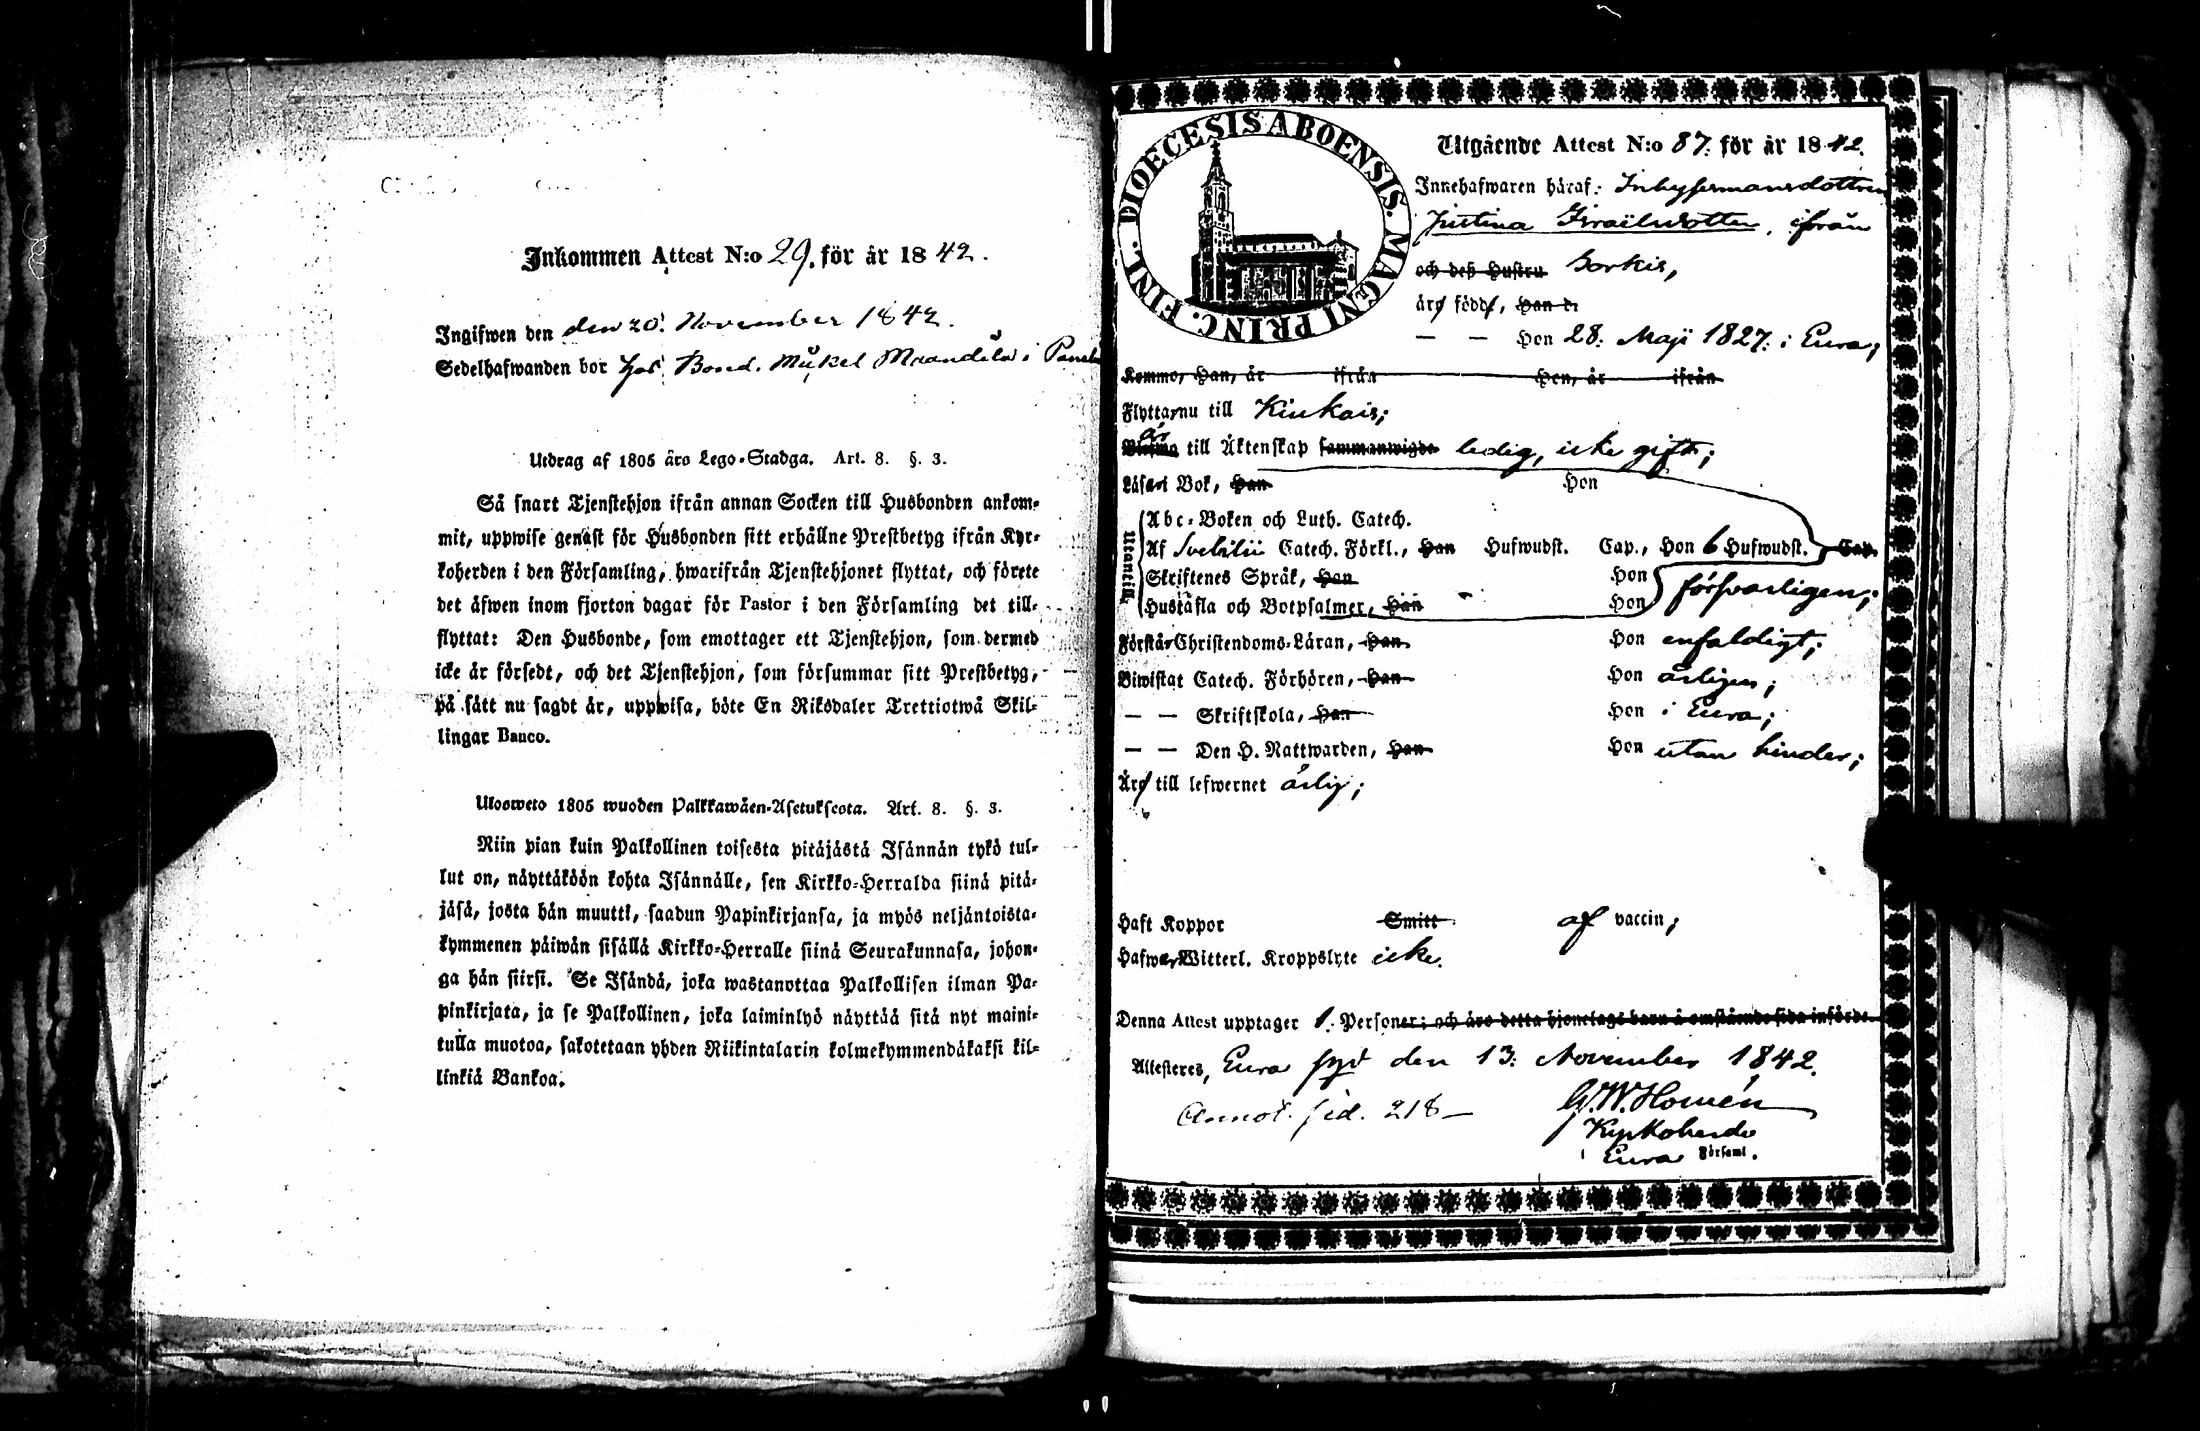 Inkommen Attest N:o 29. för år 1842.
Ingifwen den den 20. November 1842.
Sedelhafwanden bor hos Bond. Mickel Mraandila i
Utdrag af 1805 års Lego-Stadga. Art. 8. §. 3.
Så snart Tjenstehjon ifrån annan Socken till Husbonden ankom-
mit, uppwise genast för Husbonden sitt erhållne Prestbetyg ifrån Kyr-
koherden i den Församling, hwarifrån Tjenstehjonet flyttat, och förete
det äfwen inom fjorton dagar för Pastor i den Församling det till-
flyttat: Den Husbonde, som emottager ett Tjenstehjon, som dermed
icke är försedt, och det Tjenstehjon, som försummar sitt Prestbetyg,
på sätt nu sagdt är, uppwisa, böte En Riksdaler Trettiotwå Skil-
lingar Banco.
Ulosweto 1805 wuoden Palkkawäen-Asetuksesta. Art. 8. §. 3.
Niin pian kuin Palkollinen toisesta pitäjästä Isännän tykö tul-
lut on, näyttäköön kohta Isännälle, sen Kirkko-Herralda siinä pitä-
jäsä, josta hän muutti, saadun Papinkirjansa, ja myös neljäntoista-
kymmenen päiwän sisällä Kirkko-Herralle siinä Seurakunnasa, johon-
ga hän siirsi. Se Isändä, joka wastanottaa Palkollisen ilman Pa-
pinkirjata, ja se Palkollinen, joka laiminlyö näyttää sitä nyt maini-
tulla muotoa, sakotetaan yhden Riikintalarin kolmekymmendäkaksi kil-
linkiä Bankoa.
DIOECESIS ABOENSIS. MAGNI PRINC. FINL.
Utgående Attest N:o 87. för år 1842.
Innehafwaren häraf: Inhysesmansdottren
Justina Israëlsdotter, ifrån
och deß Hustru Sorkis,
äro födde, Han d.
— — Hon 28. Maji 1827. i Eura;
Kommo, Han, år ifrån Hon, år ifrån
Flytta nu till Kiukais;
är till Äktenskap sammanwigde ledig, icke gift;
Läsa i Bok, Han Hon
Utantill.
Abc-Boken och Luth. Catech.
Af Svebilii Catech. Förkl., Han Hufwudst. Cap., Hon 6 Hufwudst. Cap.
Skriftenes Språk, Han Hon
Hustafla och Botpsalmer, Han Hon försvarligen;
Förstår Christendoms-Läran, Han Hon enfaldigt;
Biwistat Catech. Förhören, Han Hon årligen;
— — Skriftskola, Han Hon i Eura;
— — Den H. Nattwarden, Han Hon utan hinder;
Äro till lefwernet ärlig;
Haft Koppor Smitt af vaccin;
Hafwa Witterl. Kroppslyte icke.
Denna Attest upptager 1. Personer; och äro detta hjonelags barn å omstående sida införde.
Attesteres, Eura den 13. November 1842.
Annot. sid. 218—
Kyrkoherde
i Eura Församl.